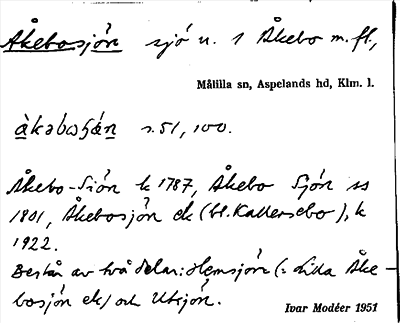 Åkebosjön sjö n. 1 Åkebo m.fl,
Målilla sn, Aspelands hd, Klm. l.
s.51, 100.
Åkebo-Siön k 1787, Åkebo Sjön ss
1801, Åkebosjön ek (bl. Kallersebo), k
1922.
Består av två delar: Hemsjön (= Lilla Åke-
bosjön ek) och Utsjön.
Ivar Modéer 1951